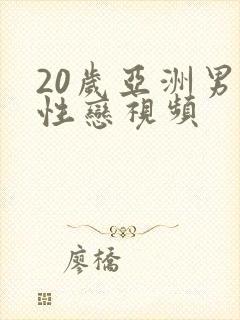 20歲亞洲男
性戀視頻
廖橋